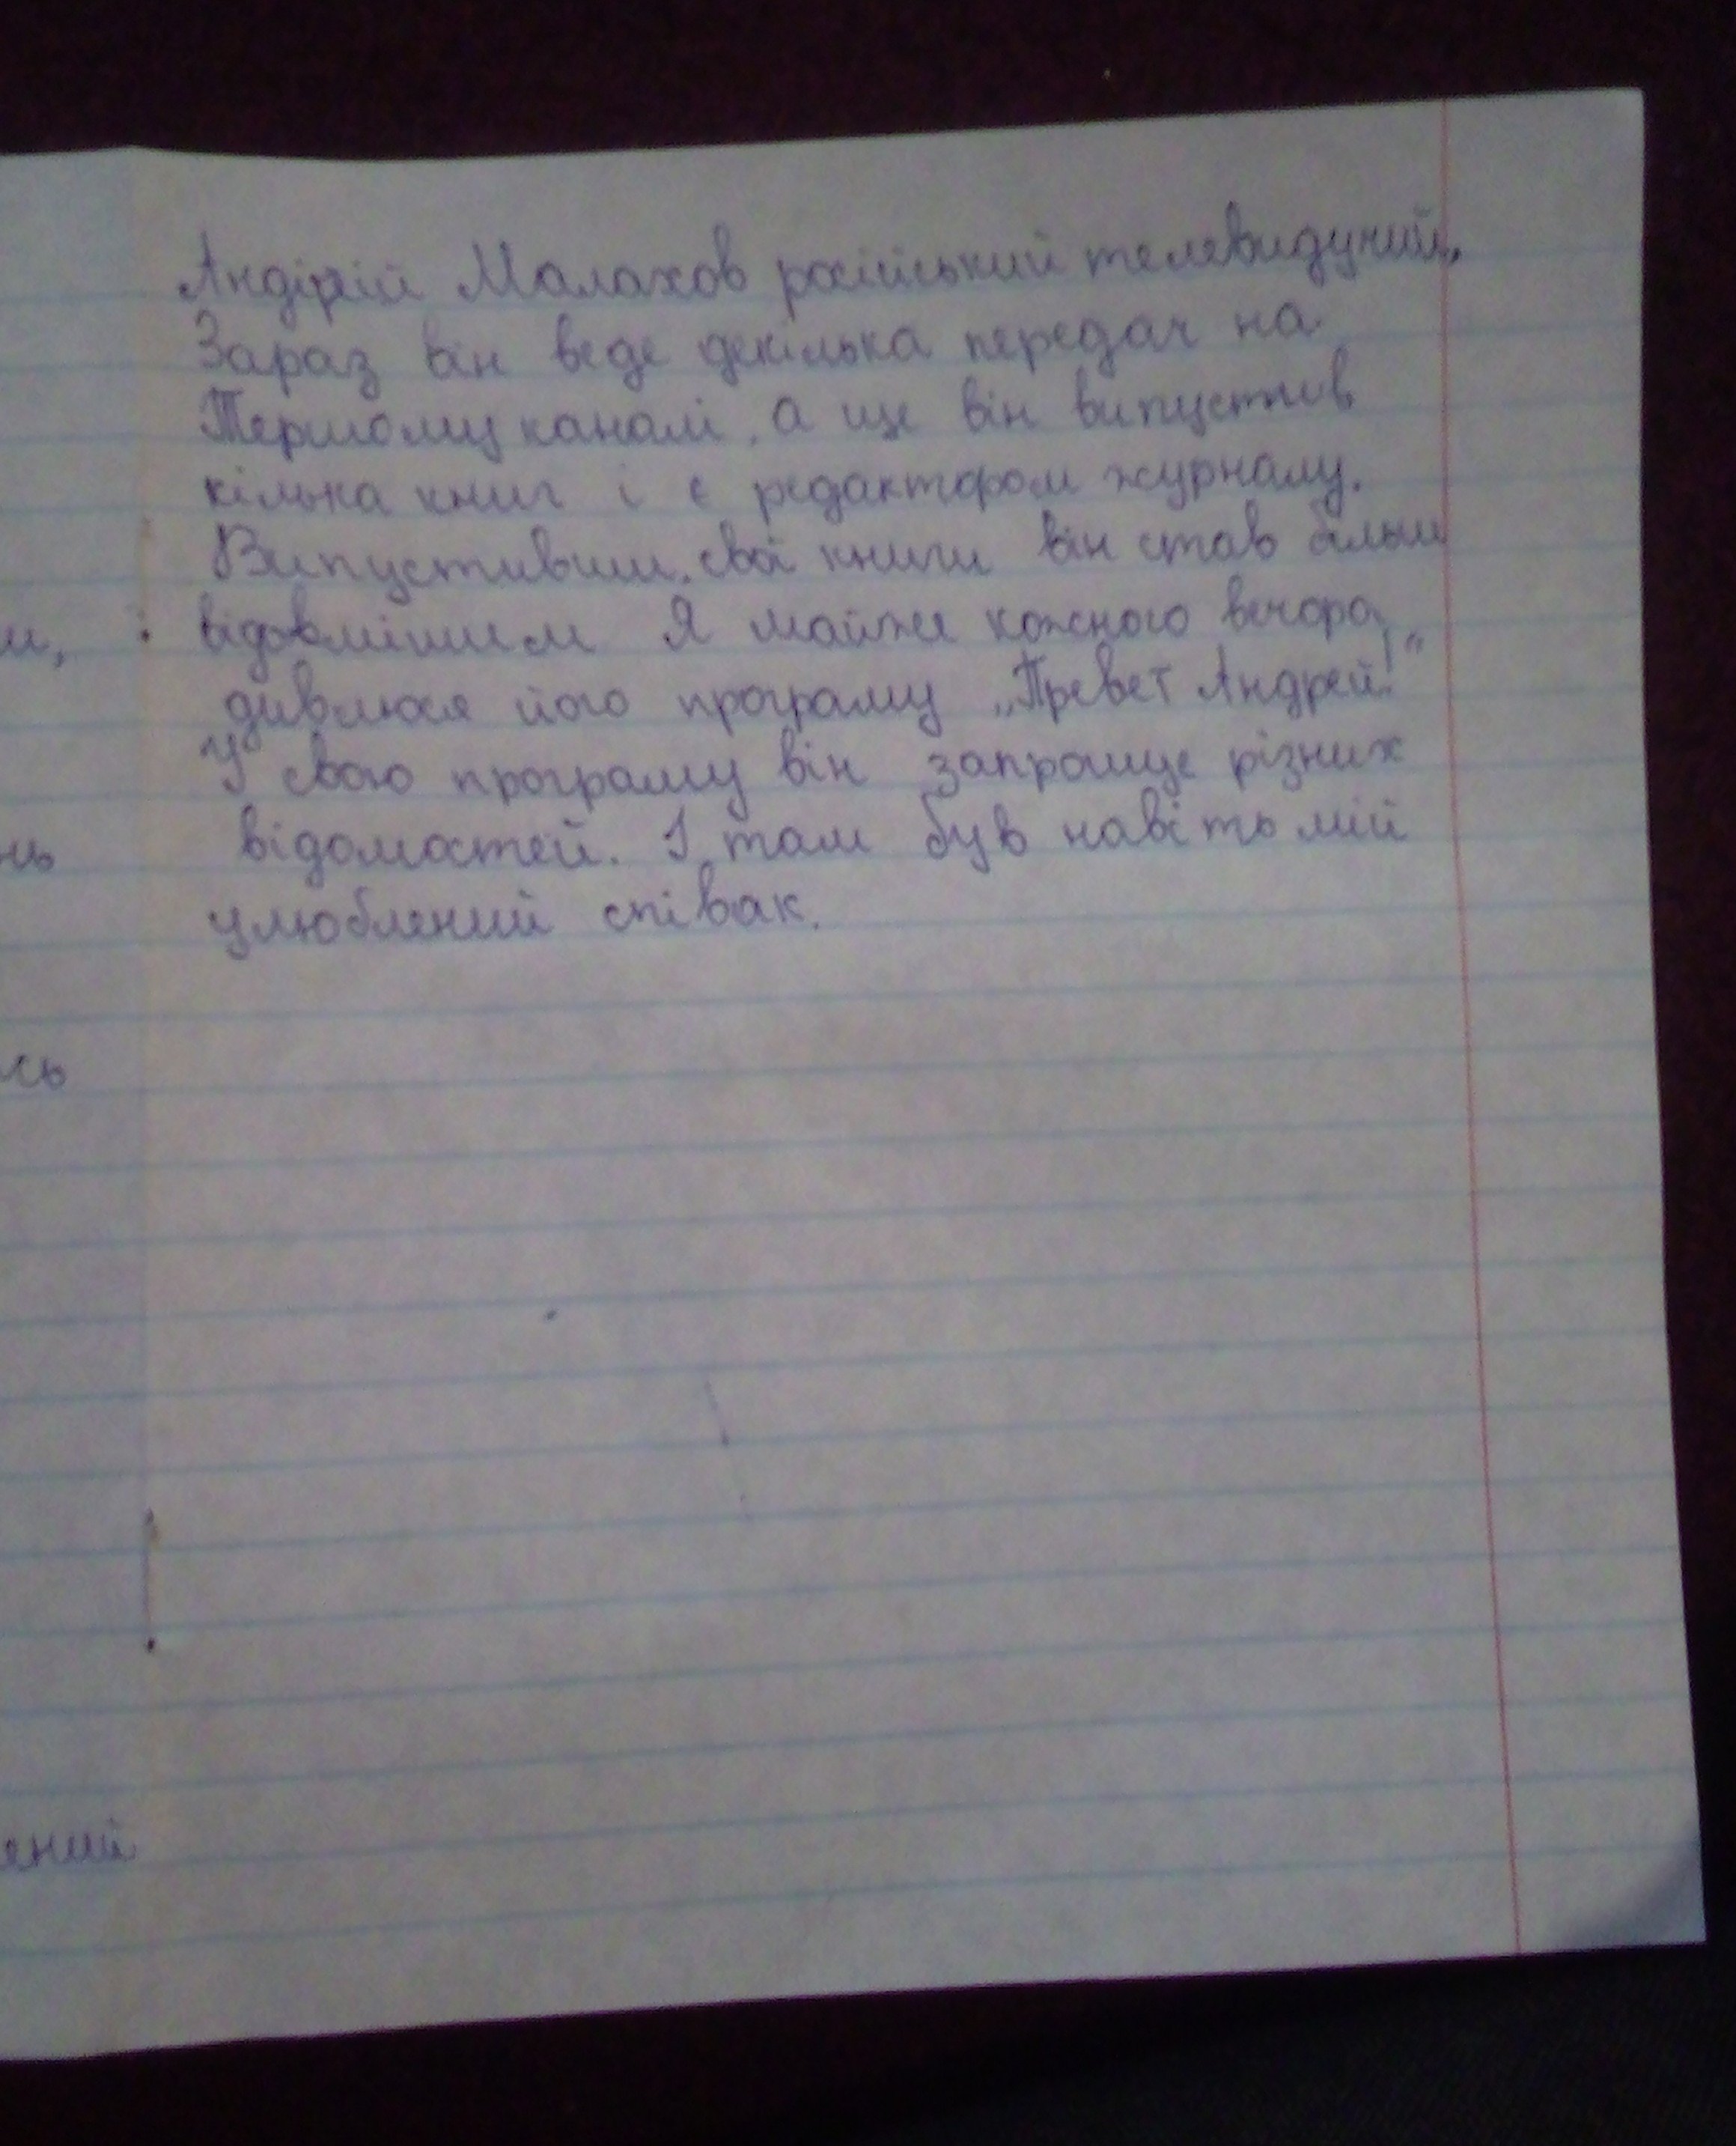 Андірій Малахов російський телевидучий.
Зараз він веде декілька передач на
Першому каналі, а ще він випустив
кілька книг і є редактором журналу.
Випустивши свої книги він став більш
відомішим Я майже кожного вечора
дивлюся його програму „Превет Андрей!"
У свою програму він запрошує різних
відомостей. І там був навіть мій
улюблений співак.